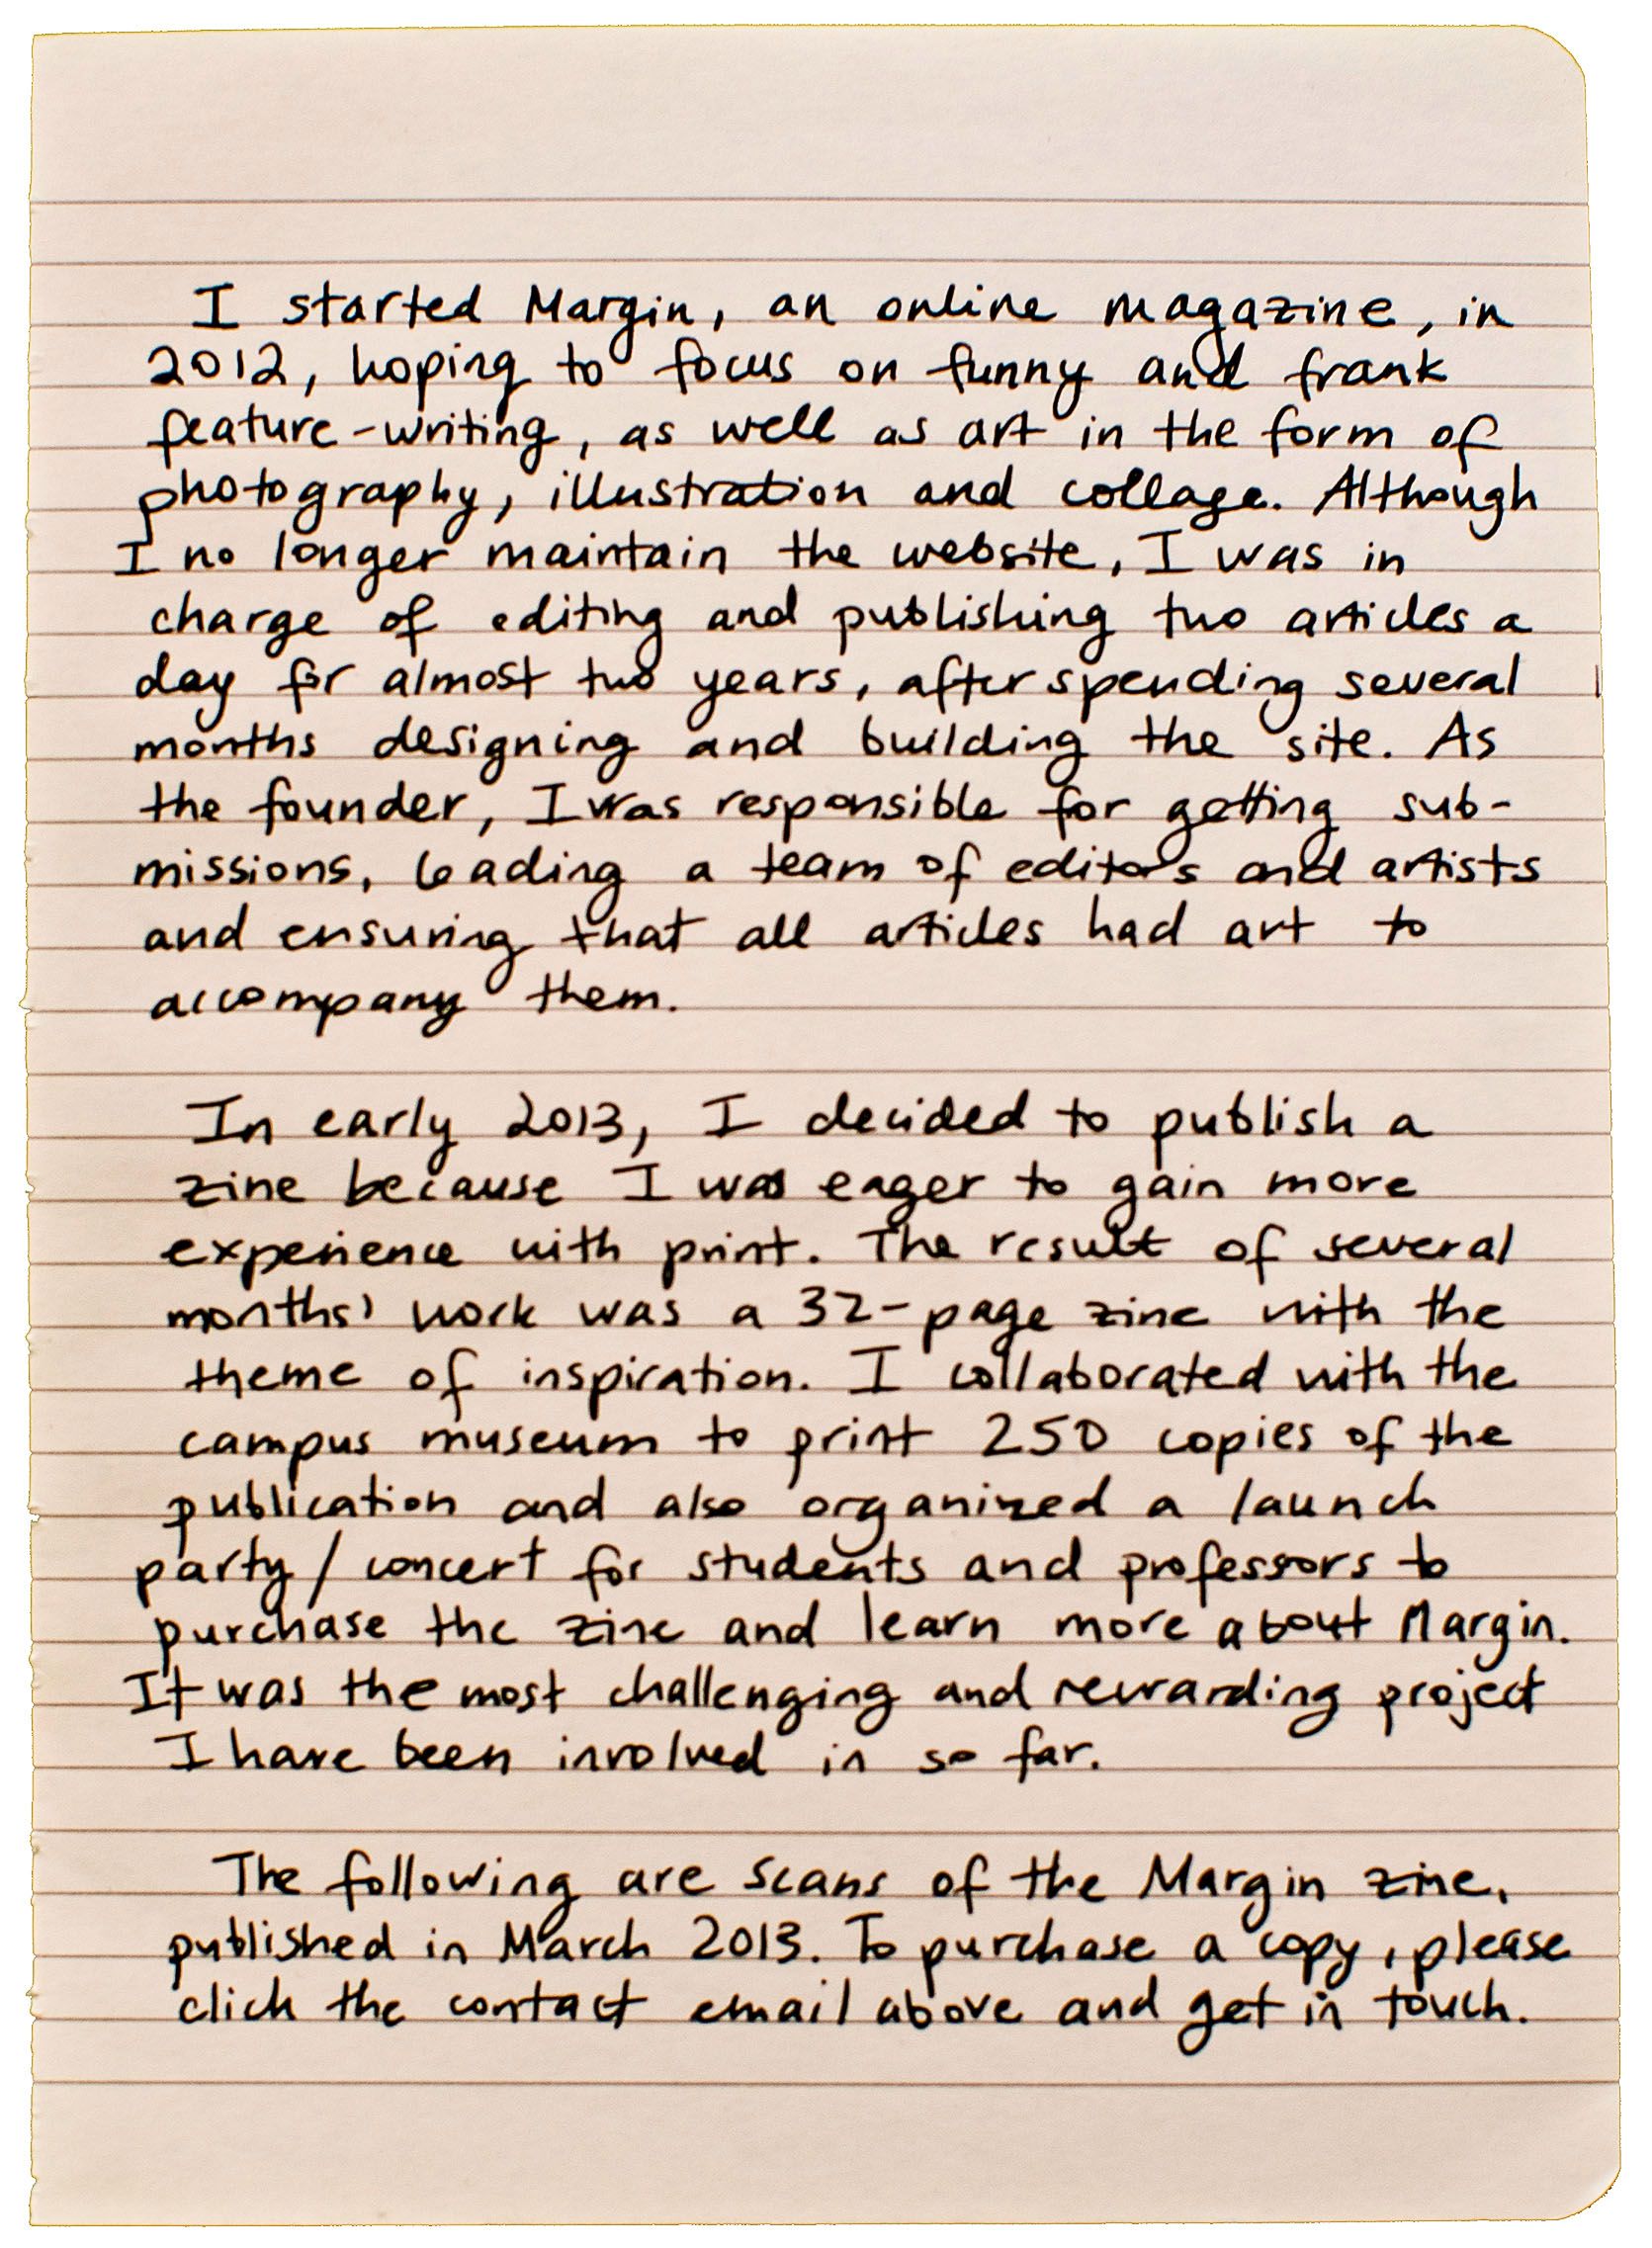 I started Margin, an online magazine, in
2012, hoping to focus on funny and frank
feature-writing, as well as art in the form of
photography, illustration and collage. Although
I no longer maintain the website, I was in
charge of editing and publishing two articles a
day for almost two years, after spending several
months designing and building the site. As
the founder, I was responsible for getting sub-
missions, leading a team of editors and artists
and ensuring that all articles had art to
accompany them.
In early 2013, I decided to publish a
zine because I was eager to gain more
experience with print. The result of several
months' work was a 32-page zine with the
theme of inspiration. I collaborated with the
campus museum to print 250 copies of the
publication and also organized a launch
party/concert for students and professors to
purchase the zine and learn more about Margin.
It was the most challenging and rewarding project
I have been involved in so far.
The following are scans of the Margin zine,
published in March 2013. To purchase a copy, please
click the contact email above and get in touch.